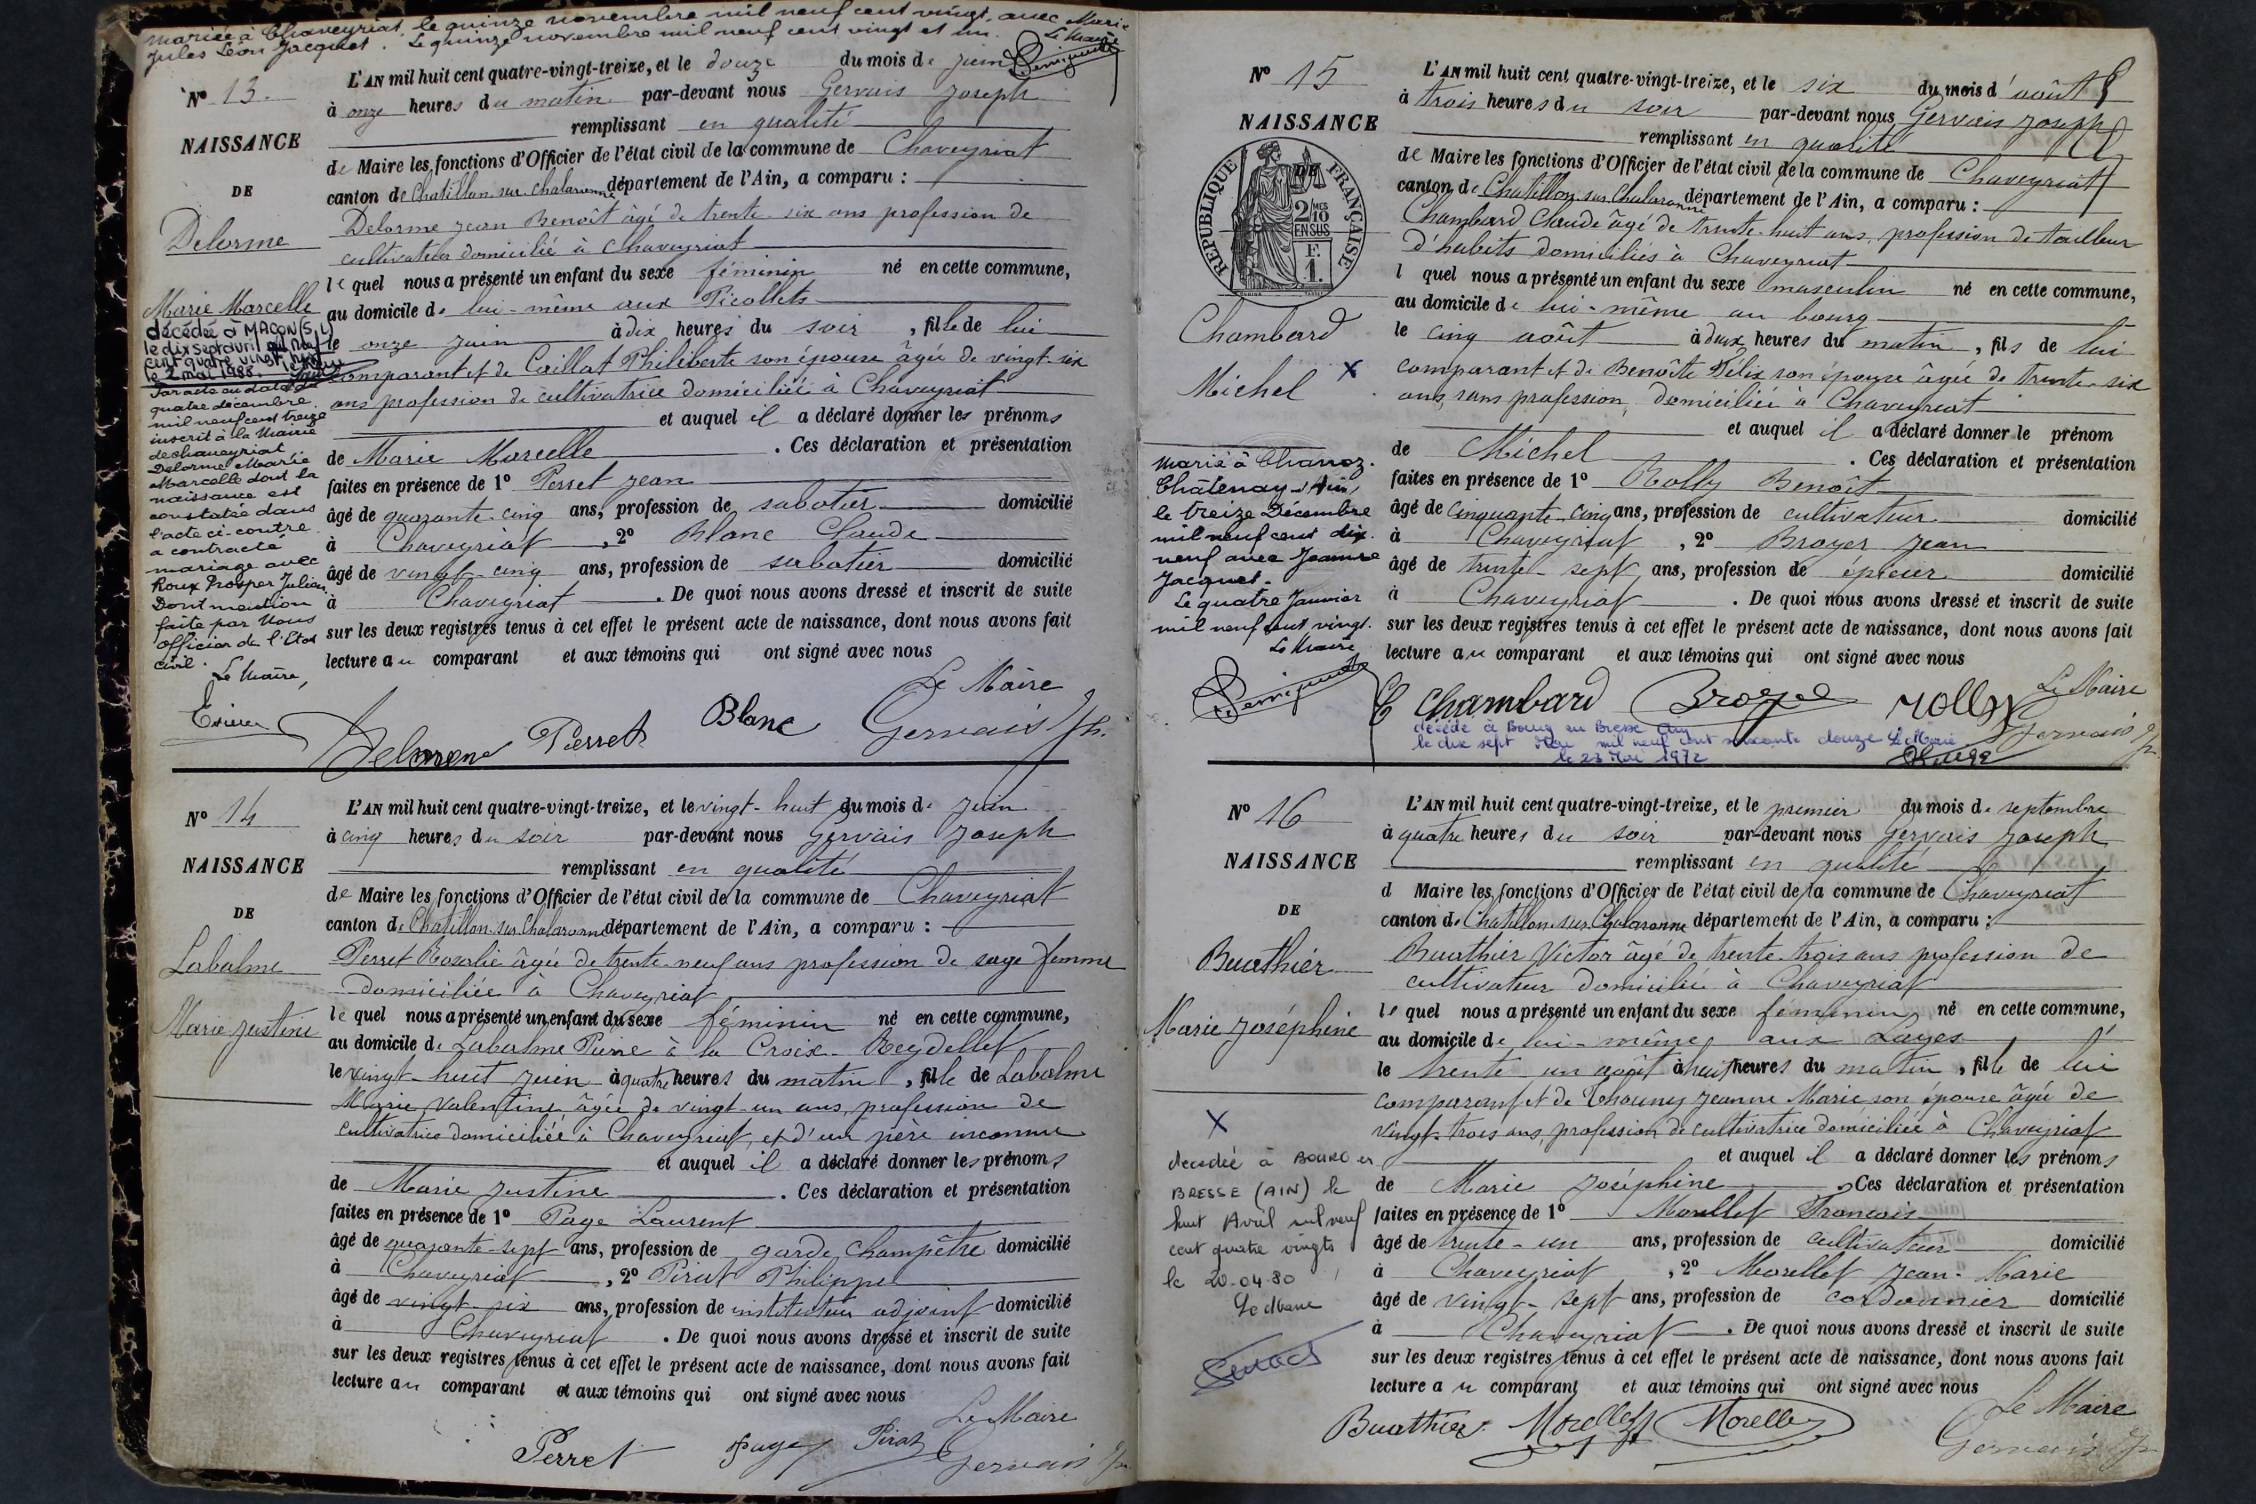 mariée à Chaveyriat, le quinze novembre mil neuf cent vingt, avec Marie
Jules Léon Jacquet. Le quinze novembre mil neuf cent vingt et un.
Le Maire
N° 13.
NAISSANCE
DE
Delorme
Marie Marcelle
décédée à MACON (S.L)
le dix sept avril mil neuf
cent quatre vingt huit
le 2 mai 1988. Le Maire
Par acte en date du
quatre décembre
mil neuf cent treize
inscrit à la Mairie
de Chaveyriat
Delorme Marie
Marcelle dont la
naissance est
constatée dans
l'acte ci-contre
a contracté
mariage avec
Roux Prosper Julien
Dont mention
faite par Nous
officier de l'Etat
civil.
Le Maire,
L'AN mil huit cent quatre-vingt-treize, et le douze du mois de juin
à onze heures du matin par-devant nous Gervais Joseph
remplissant en qualité
de Maire les fonctions d'Officier de l'état civil de la commune de Chaveyriat
canton de Chatillon-sur-Chalaronne département de l'Ain, a comparu :
Delorme Jean Benoît âgé de trente-six ans profession de
cultivateur domicilié à Chaveyriat
lequel nous a présenté un enfant du sexe féminin né en cette commune,
au domicile de lui-même aux Picollets
le onze juin à dix heures du soir, fille de lui
comparant et de Caillat Philiberte son épouse âgée de vingt-six
ans profession de cultivatrice domiciliée à Chaveyriat
et auquel il a déclaré donner les prénoms
de Marie Marcelle. Ces déclaration et présentation
faites en présence de 1° Perret Jean
âgé de quarante-cinq ans, profession de sabotier domicilié
à Chaveyriat, 2° Blanc Claude
âgé de vingt-cinq ans, profession de sabotier domicilié
à Chaveyriat. De quoi nous avons dressé et inscrit de suite
sur les deux registres tenus à cet effet le présent acte de naissance, dont nous avons fait
lecture au comparant et aux témoins qui ont signé avec nous
Le Maire
Delorme Perret Blanc Gervais Jh.
N° 14
NAISSANCE
DE
Labalme
Marie Justine
L'AN mil huit cent quatre-vingt-treize, et le vingt-huit du mois de juin
à cinq heures du soir par-devant nous Gervais Joseph
remplissant en qualité
de Maire les fonctions d'Officier de l'état civil de la commune de Chaveyriat
canton de Chatillon-sur-Chalaronne département de l'Ain, a comparu :
Perret Rosalie âgée de trente-neuf ans profession de sage femme
domiciliée à Chaveyriat
lequel nous a présenté un enfant du sexe féminin né en cette commune,
au domicile de Labalme Pierre à la Croix-Reydellet
le vingt-huit juin à quatre heures du matin, fille de Labalme
Marie Valentine, âgée de vingt-un ans, profession de
cultivatrice domiciliée à Chaveyriat, et d'un père inconnu
et auquel il a déclaré donner les prénoms
de Marie Justine. Ces déclaration et présentation
faites en présence de 1° Page Laurent
âgé de quarante-sept ans, profession de garde champêtre domicilié
à Chaveyriat, 2° Pirat Philippe
âgé de vingt-six ans, profession de instituteur adjoint domicilié
à Chaveyriat. De quoi nous avons dressé et inscrit de suite
sur les deux registres tenus à cet effet le présent acte de naissance, dont nous avons fait
lecture au comparant et aux témoins qui ont signé avec nous
Le Maire
Perret Page Pirat Gervais Jh
N° 15
NAISSANCE
DE
REPUBLIQUE FRANÇAISE
2/10 MES
EN SUS
F.
1.
Chambard
Michel
X
marié à Chanoz-
Châtenay (Ain)
le treize Décembre
mil neuf cent dix-
neuf avec Jeanne
Jacquet.
Le quatre Janvier
mil neuf cent vingt.
Le Maire
L'AN mil huit cent quatre-vingt-treize, et le six du mois d'août
à trois heures du soir par-devant nous Gervais Joseph
remplissant en qualité
de Maire les fonctions d'Officier de l'état civil de la commune de Chaveyriat
canton de Chatillon-sur-Chalaronne département de l'Ain, a comparu :
Chambard Claude âgé de trente-huit ans, profession de tailleur
d'habits domiciliés à Chaveyriat
l quel nous a présenté un enfant du sexe masculin né en cette commune,
au domicile de lui-même au bourg
le cinq août à deux heures du matin, fils de lui
comparant et de Benoîte Délix son épouse âgée de trente-six
ans, sans profession, domiciliée à Chaveyriat
et auquel il a déclaré donner le prénom
de Michel. Ces déclaration et présentation
faites en présence de 1° Rolly Benoît
âgé de cinquante-cinq ans, profession de cultivateur domicilié
à Chaveyriat, 2° Broyer Jean
âgé de trente-sept ans, profession de épicier domicilié
à Chaveyriat. De quoi nous avons dressé et inscrit de suite
sur les deux registres tenus à cet effet le présent acte de naissance, dont nous avons fait
lecture au comparant et aux témoins qui ont signé avec nous
Le Maire
C Chambard Broyer Rolly Gervais Jh
décédé à Bourg en Bresse Ain
le dix sept Mai mil neuf cent soixante douze Le Maire
le 23 Mai 1972
N° 16
NAISSANCE
DE
Buathier
Marie Joséphine
X
décédée à BOURG en
BRESSE (AIN) le
huit Avril mil neuf
cent quatre vingts
le 20-04-80
Le Maire
L'AN mil huit cent quatre-vingt-treize, et le premier du mois de septembre
à quatre heures du soir par-devant nous Gervais Joseph
remplissant en qualité
d Maire les fonctions d'Officier de l'état civil de la commune de Chaveyriat
canton de Chatillon-sur-Chalaronne département de l'Ain, a comparu :
Buathier Victor âgé de trente-trois ans profession de
cultivateur domicilié à Chaveyriat
lequel nous a présenté un enfant du sexe féminin né en cette commune,
au domicile de lui-même aux Layes
le trente-un août à huit heures du matin, fille de lui
comparant et de Thouny Jeanne Marie son épouse âgée de
vingt-trois ans, profession de cultivatrice domiciliée à Chaveyriat
et auquel il a déclaré donner les prénoms
de Marie Joséphine. Ces déclaration et présentation
faites en présence de 1° Morellet François
âgé de trente-un ans, profession de cultivateur domicilié
à Chaveyriat, 2° Morellet Jean-Marie
âgé de vingt-sept ans, profession de cordonnier domicilié
à Chaveyriat. De quoi nous avons dressé et inscrit de suite
sur les deux registres tenus à cet effet le présent acte de naissance, dont nous avons fait
lecture au comparant et aux témoins qui ont signé avec nous
Le Maire
Buathier Morellet Morellet Gervais Jh